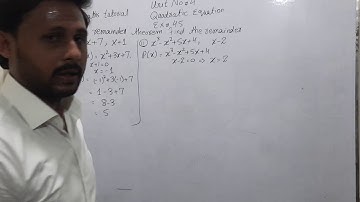 Unit No #4
tutorial Quadratic Equation
Ex # 4.5
remainder theorem find the remainder
+7, x+1
x³-x²+5x+4, x-2
x²+3x+7
P(x) = x³-x²+5x+4
x+1=0
x-2=0 ⇒ x=2
x=-1
(-1)²+3(-1)+7
= 1-3+7
= 8-3
= 5